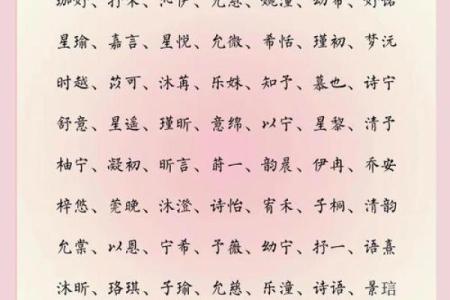 沁伊、允慈、婉潼、幼希、妤锘
星瑜、嘉言、星悦、允微、希恬、瑾初、梦沅
时越、苡可、沐苒、乐姝、知予、慕也、诗宁
舒意、星遥、瑾昕、意绵、以宁、星黎、清予
柚宁、凝初、昕言、莳一、韵晨、伊冉、乔安
梓悠、莞晚、沐澄、诗怡、宥禾、子桐、清韵
允棠、以恩、宁希、予薇、幼宁、抒一、语熹
沐昕、珞琪、子瑜、允慈、乐潼、诗语、景瑄